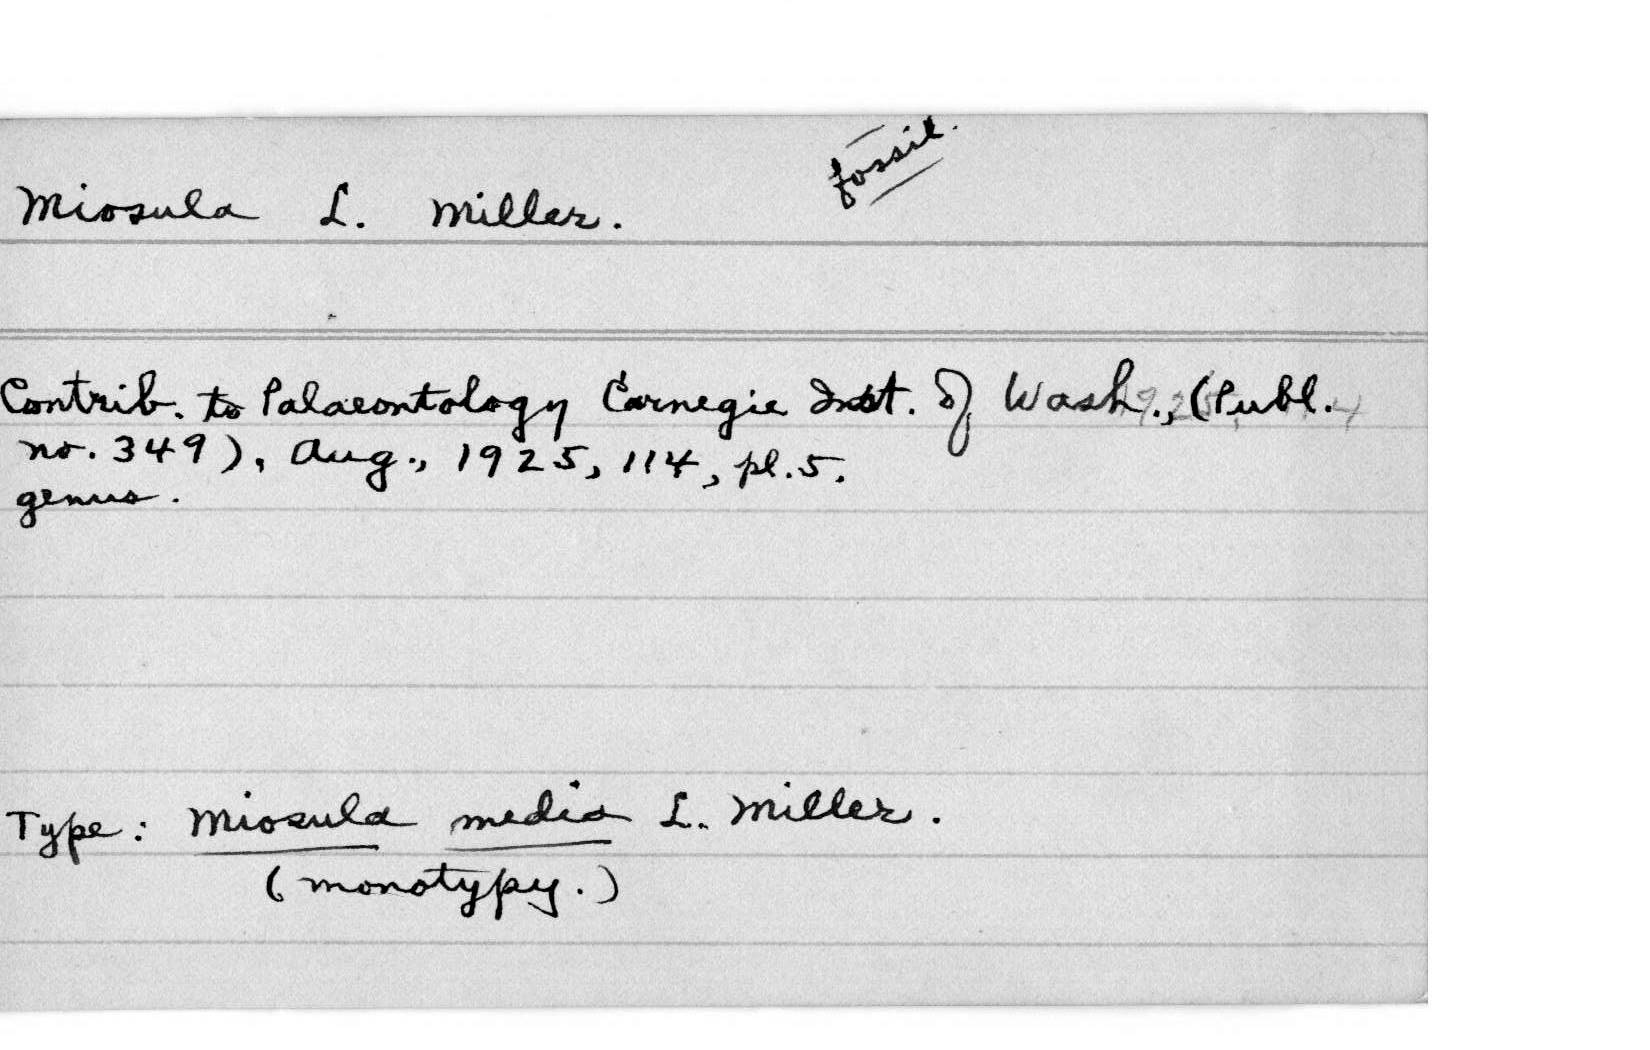 fossil.
Miosula L. Miller.
Contrib. to Palaeontology Carnegie Inst. of Wash., (Publ.
no. 349), Aug., 1925, 114, pl. 5.
genus.
Type: Miosula media L. Miller.
(monotypy.)